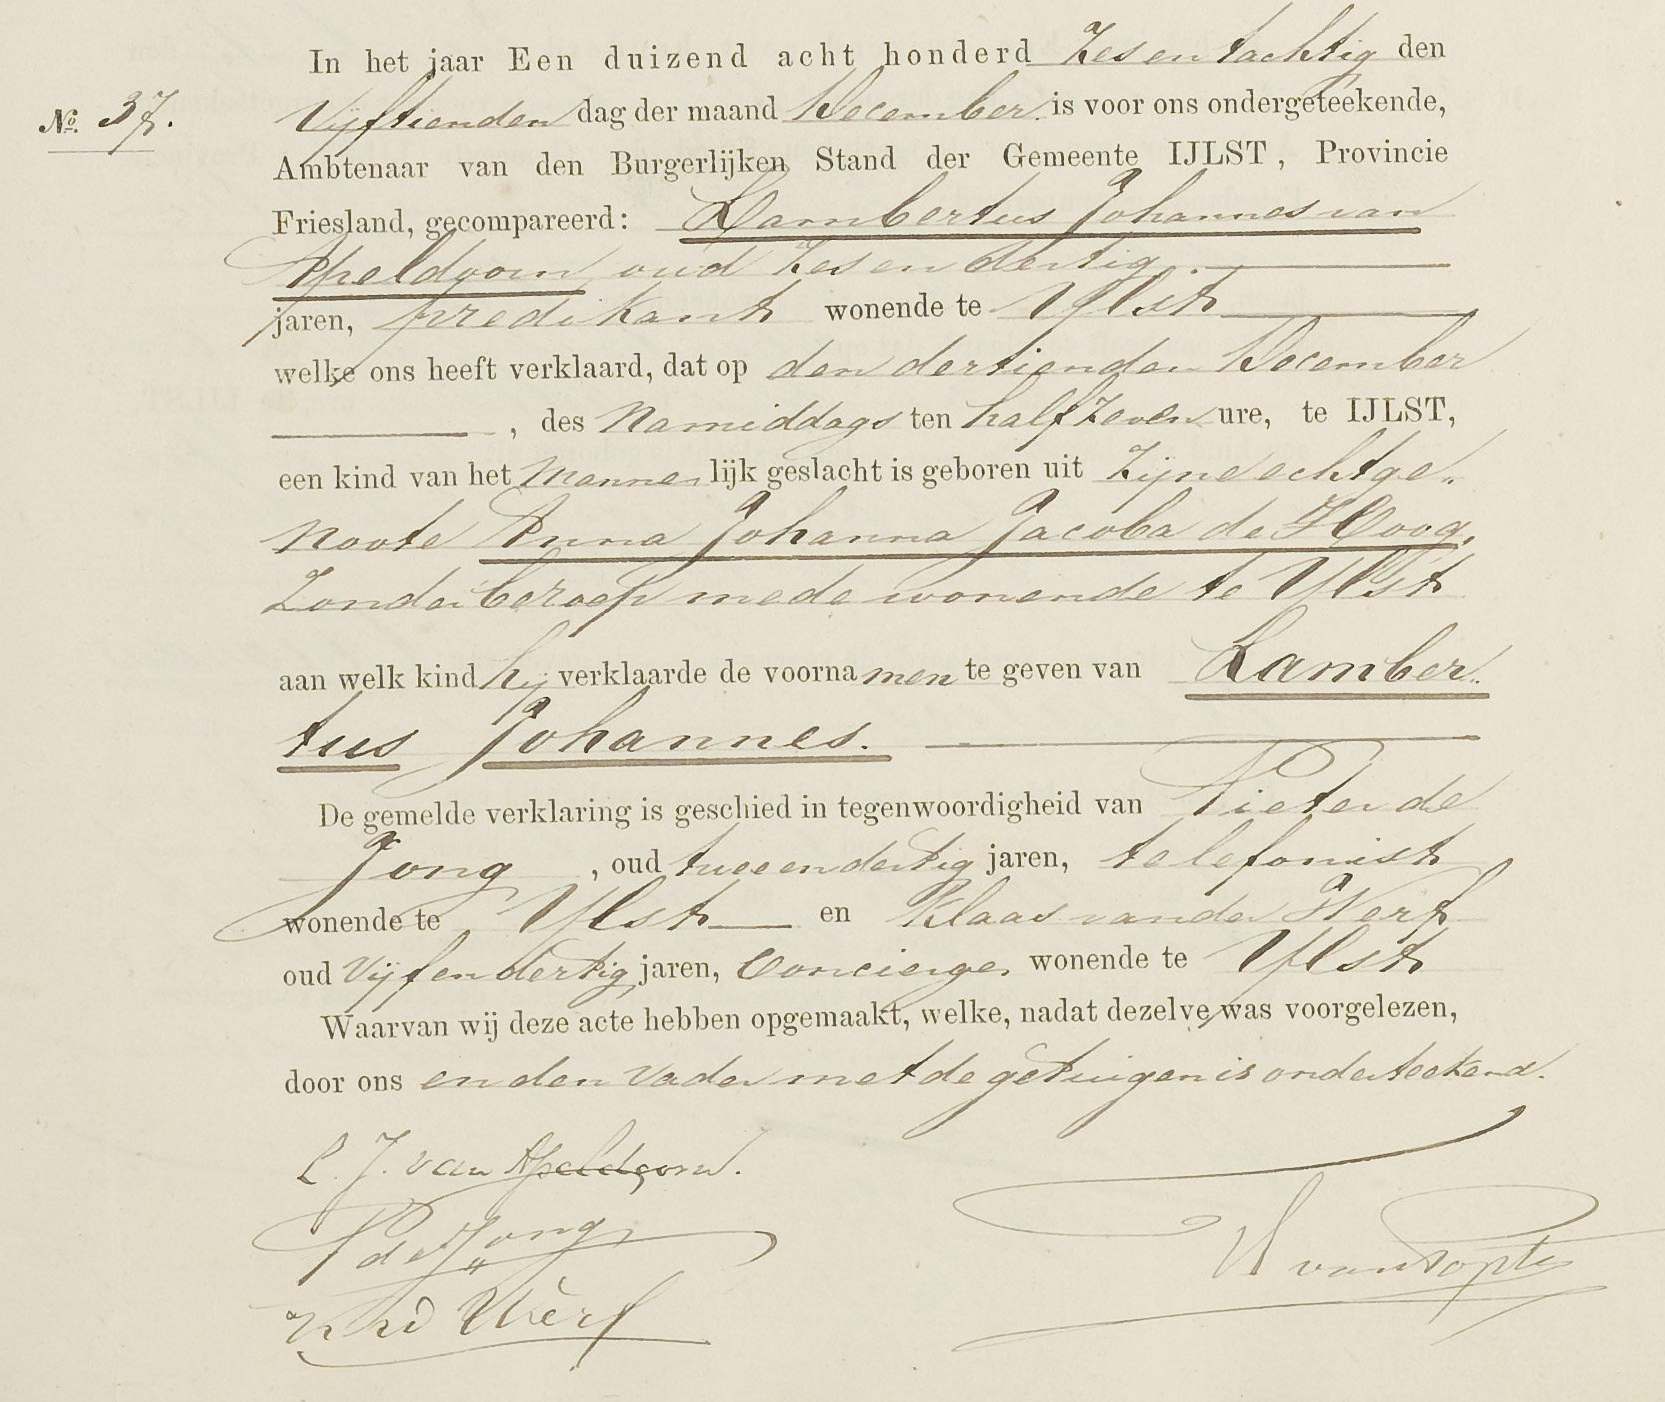 In het jaar Een duizend acht honderd Zes en tachtig den
No. 37.
Vijftienden dag der maand December. is voor ons ondergeteekende,
Ambtenaar van den Burgerlijken Stand der Gemeente IJLST, Provincie
Friesland, gecompareerd: Lambertus Johannes van
Apeldoorn oud Zes en dertig.
jaren, predikant wonende te IJlst
welke ons heeft verklaard, dat op den dertienden December
, des Namiddags ten half Zeven ure, te IJLST,
een kind van het Manne lijk geslacht is geboren uit Zijne echtge„
noote Anna Johanna Jacoba de Hoog,
Zonder beroep mede wonende te IJlst
aan welk kind hij verklaarde de voorna men te geven van Lamber„
tus Johannes.
De gemelde verklaring is geschied in tegenwoordigheid van Pieter de
Jong , oud twee en dertig jaren, telefonist
wonende te IJlst en Klaas van der Werf
oud Vijf en dertig jaren, Concierge, wonende te IJlst
Waarvan wij deze acte hebben opgemaakt, welke, nadat dezelve was voorgelezen,
door ons en den Vader met de getuigen is onderteekend.
L. J. van Apeldoorn.
P de Jong
K v d Werf